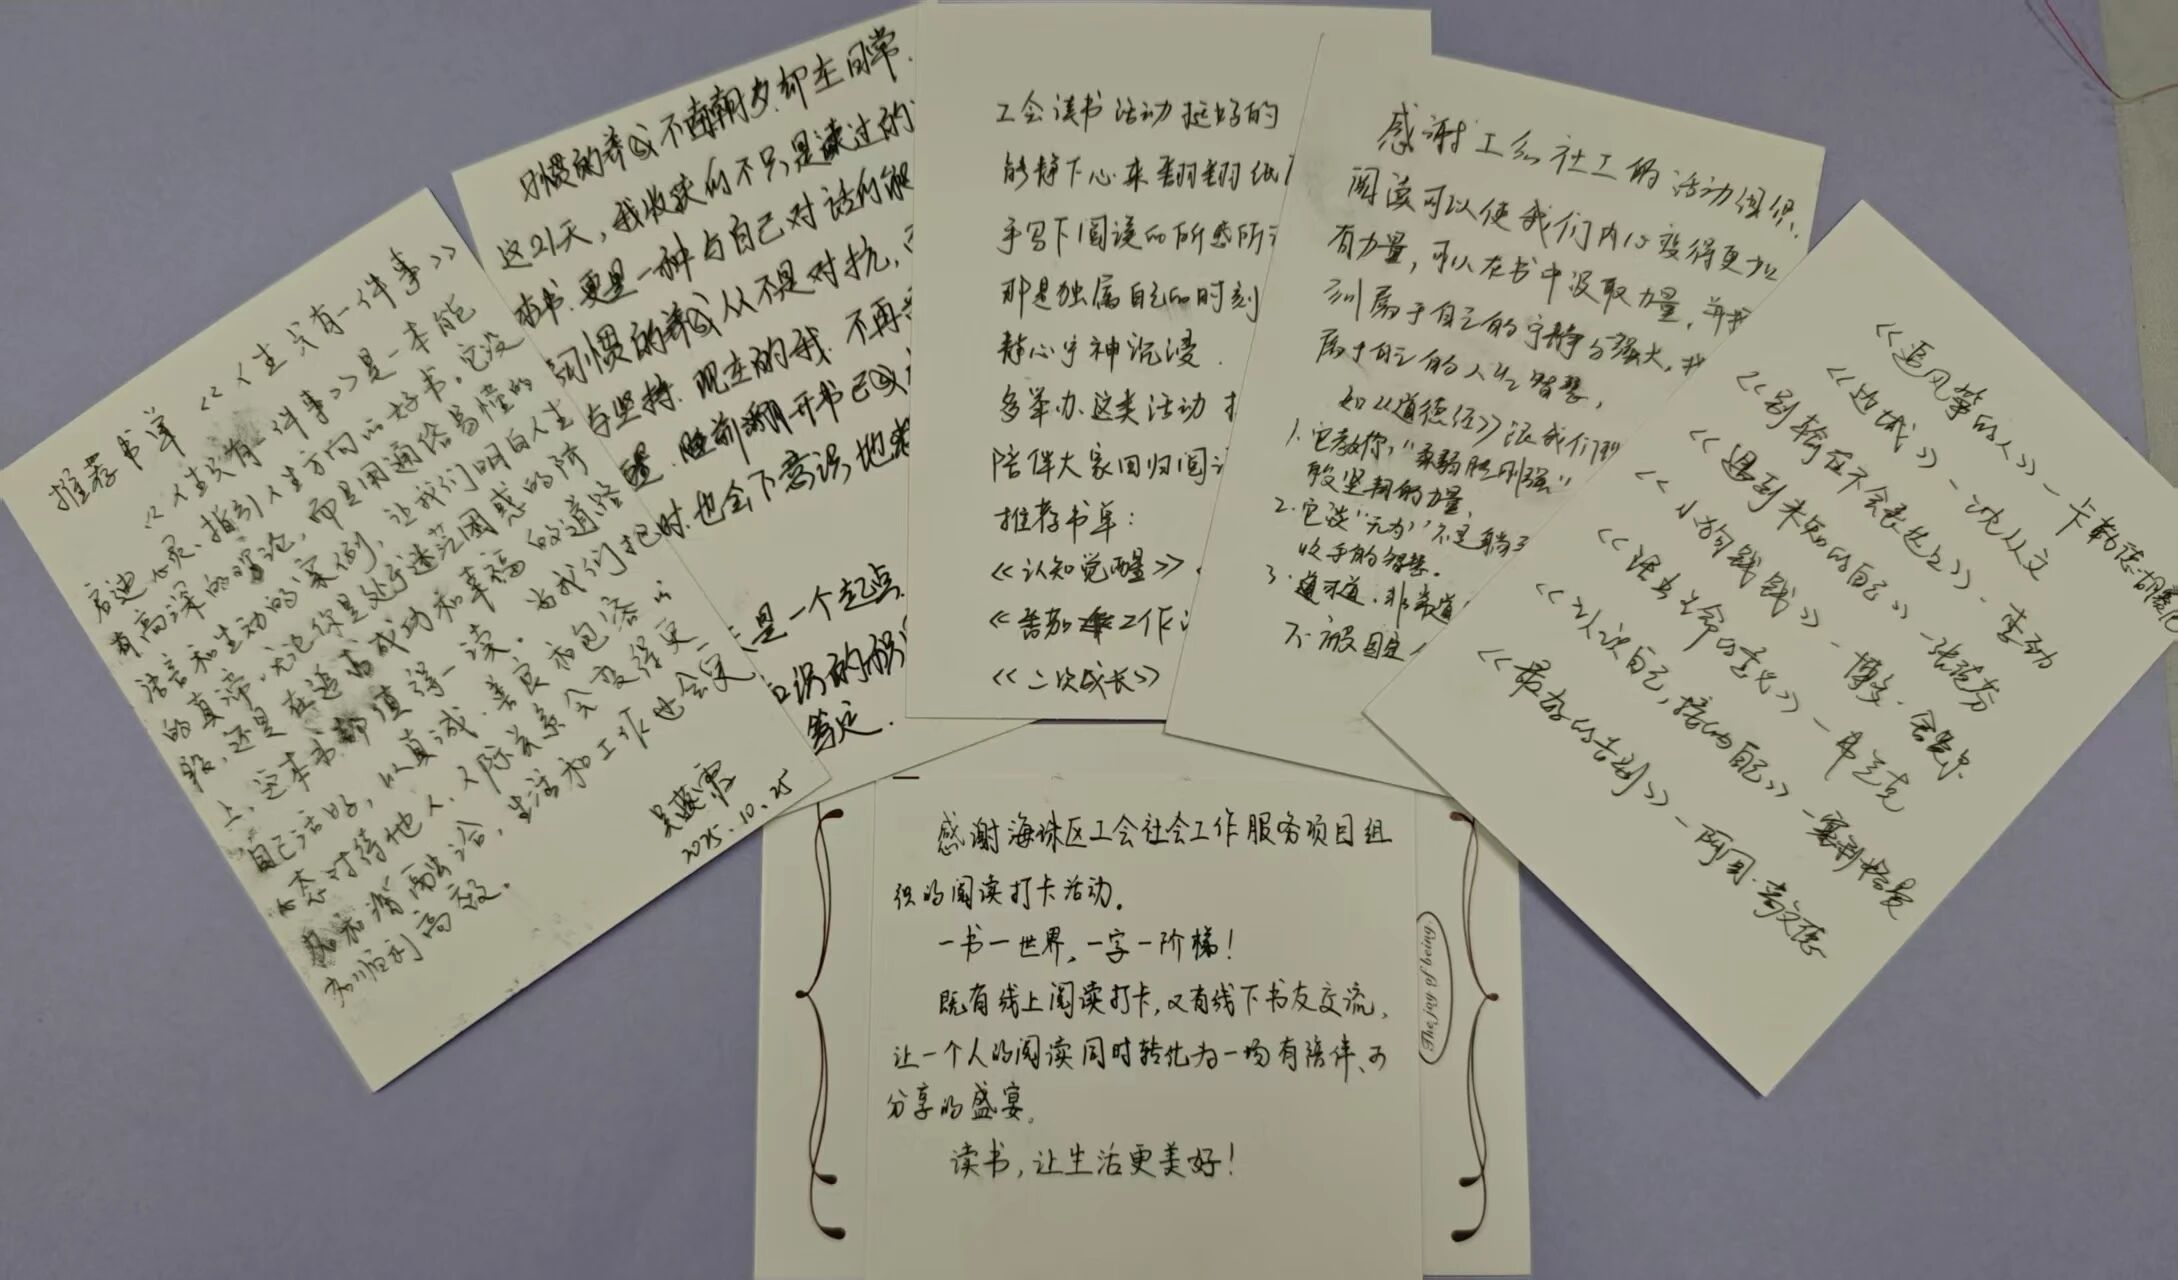 推荐书单 《人生只有一件事》
《人生只有一件事》是一本能
启迪心灵、指引人生方向的好书。它没
有高深的理论，而是用通俗易懂的
语言和生动的案例，让我们明白人生
的真谛。无论你是处于迷茫困惑的阶
段，还是在追求成功和幸福的道路
上，这本书都值得一读。当我们把
自己活好，以真诚、善良和包容的
心态对待他人，人际关系会变得更
和谐融洽，生活和工作也会更
加顺利高效。
吴
2025.10.25
习惯的养成不在朝夕，却在日常.
这21天，我收获的不只是读过的
本书.更是一种与自己对话的能
习惯的养成从不是对抗，
与坚持.现在的我.不再
睡前翻开书已成
时.也会下意识地
是一个起点.
笃定.
工会读书活动挺好的
能静下心来翻翻纸
手写下阅读的所感所
那是独属自己的时刻
静心宁神沉浸.
多举办这类活动
陪伴大家回归阅
推荐书单：
《认知觉醒》
工作
《二次成长》
感谢工会社工的活动组织.
阅读可以使我们内心变得更加
有力量，可以在书中汲取力量，并找
到属于自己的宁静与强大，找
属于自己的人生智慧，
如《道德经》让我们
1.它教你，"柔弱胜刚强"
般坚韧的力量，
2.它说"无为"不是躺平
收手的智慧。
3.道可道，非常道
不被固定
《追风筝的人》—卡勒德·胡赛尼
《边城》—沈从文
《别输在不会表达上》·李劲
《遇到未知的自己》—张德芬
《小狗钱钱》—博多·舍费尔
《活出生命的意义》—弗兰克
《认识自己，接纳自己》—塞利格曼
《最好的告别》—阿图·葛文德
感谢海珠区工会社会工作服务项目组
织的阅读打卡活动。
一书一世界，一字一阶梯！
既有线上阅读打卡，又有线下书友交流，
让一个人的阅读同时转化为一场有陪伴、可
分享的盛宴。
读书，让生活更美好！
The joy of being.